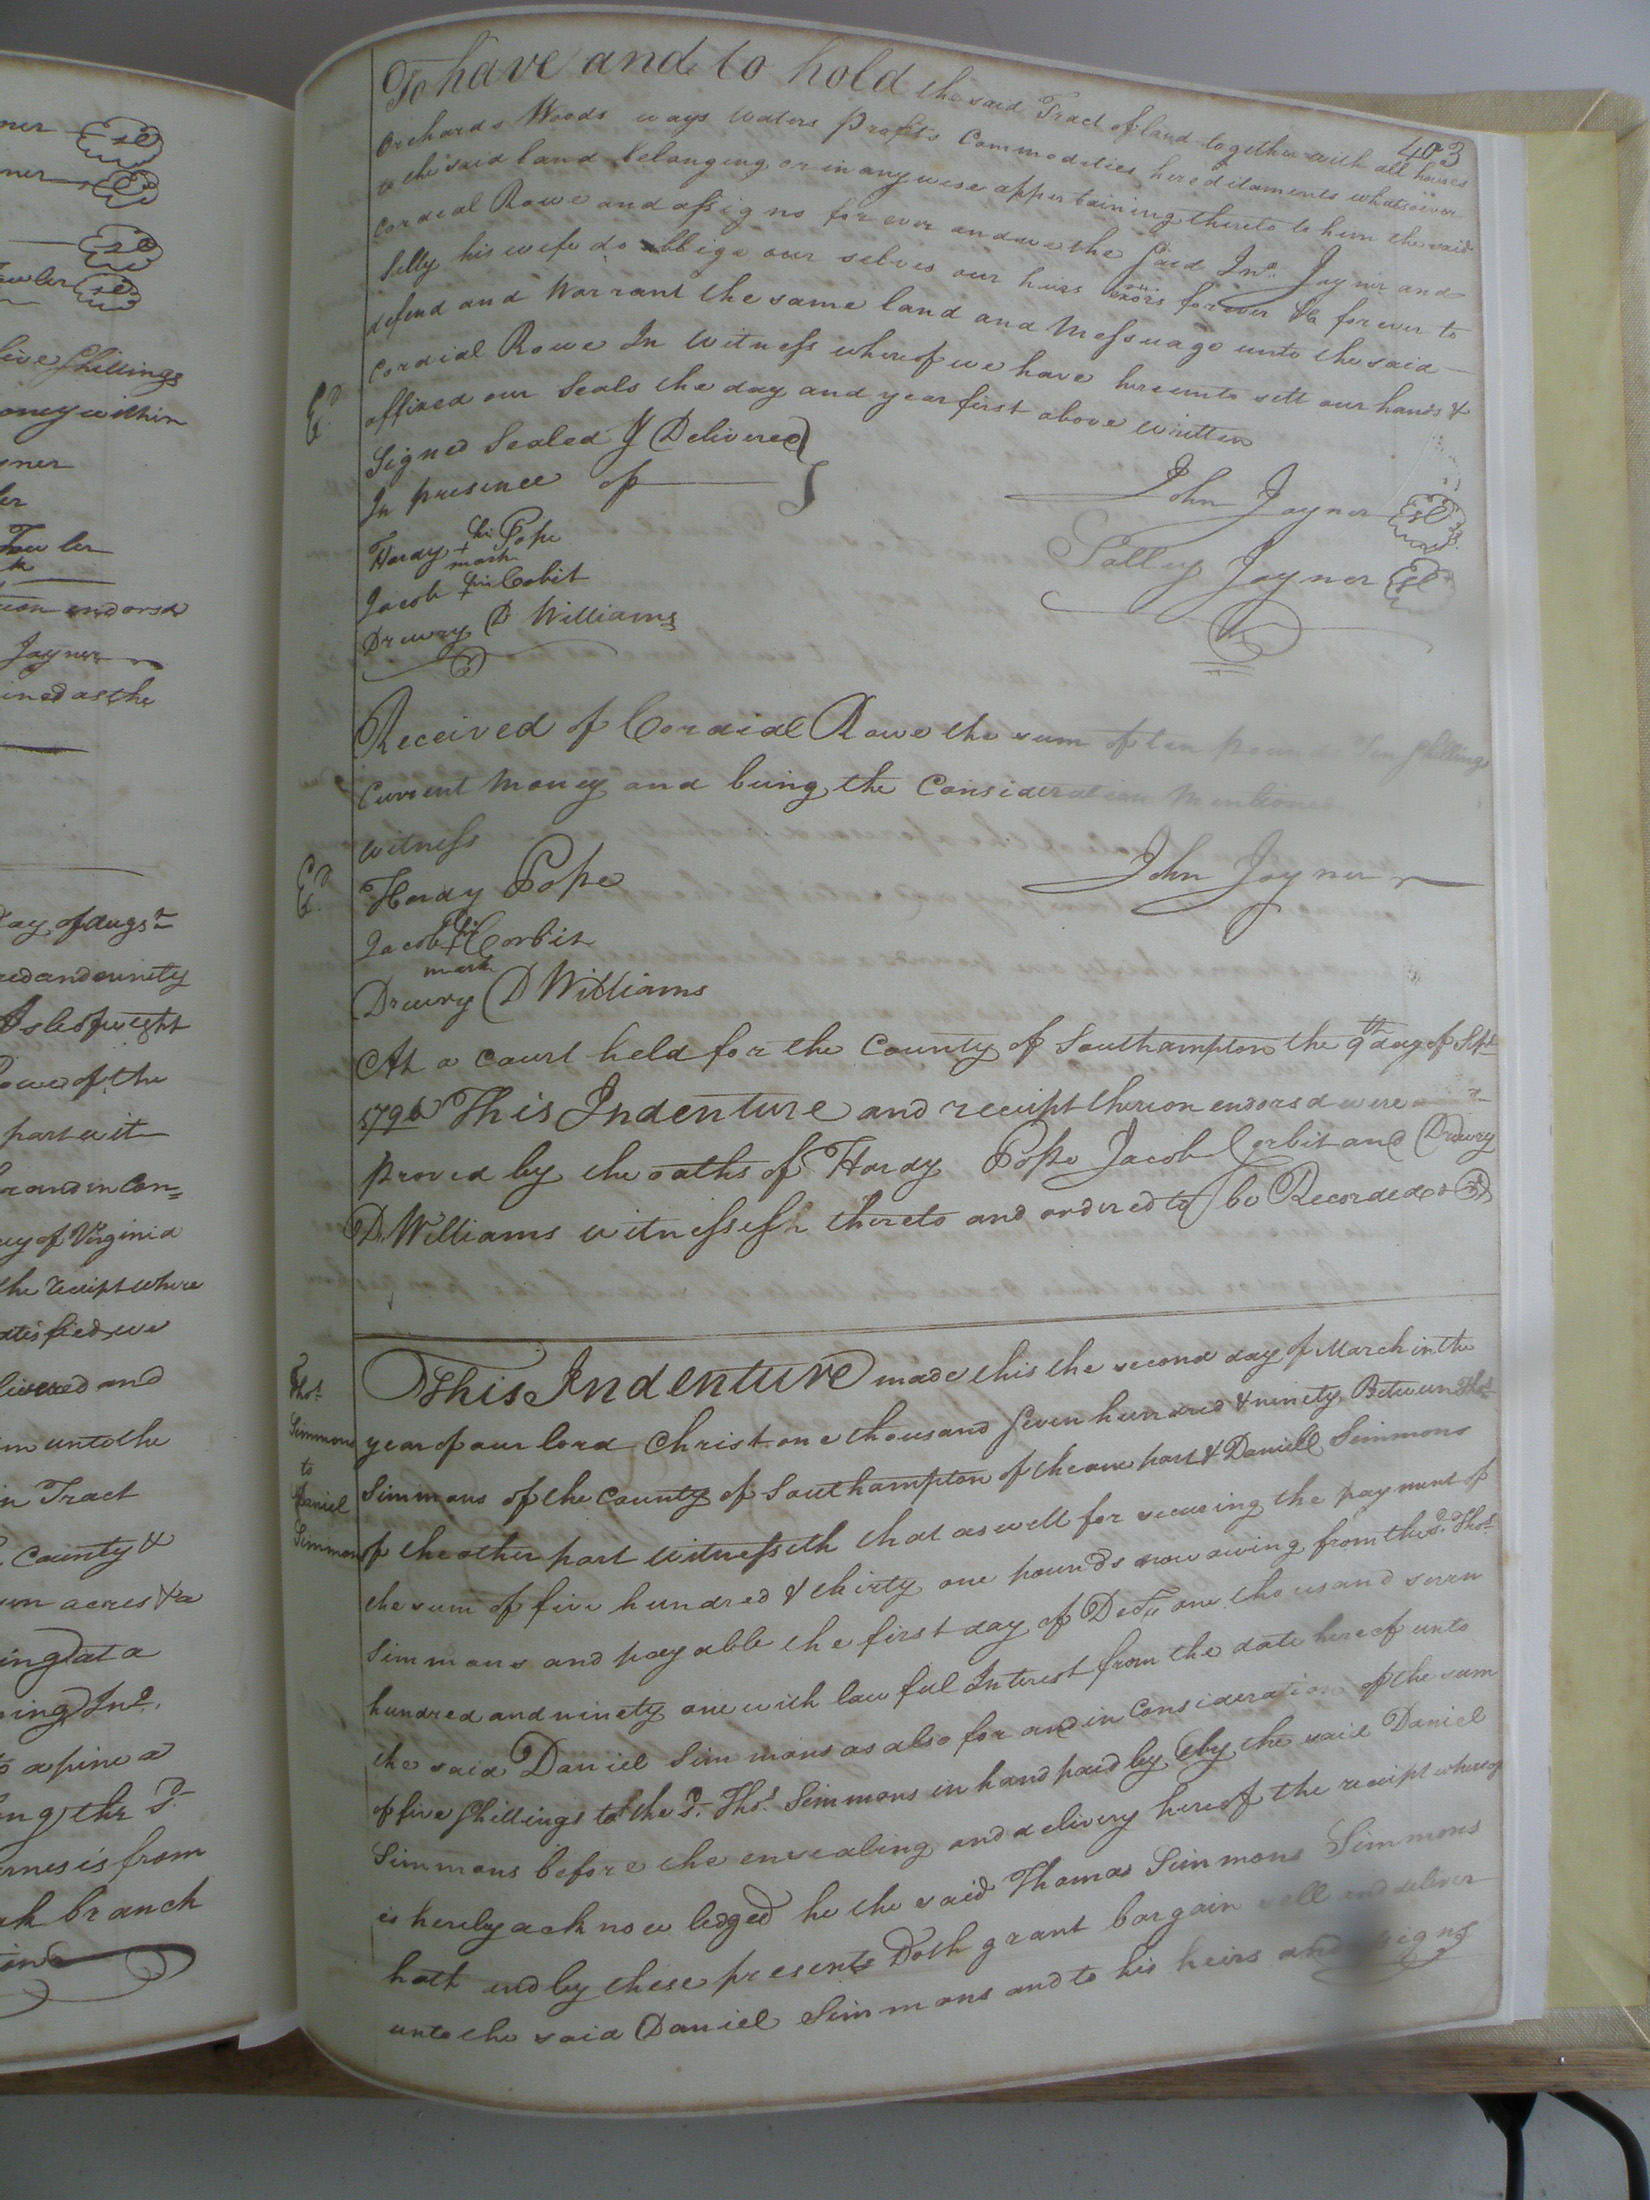 ner sl
ner sl
sl
owler sl
five Shillings
oney within
yner
ler
Fowler
tion endorsd
Joyner
ined as the
day of Augst
red and ninety
Isle of wight
Rowe of the
part wit
r and in Con=
cy of Virginia
the receipt where
atisfied we
livered and
m unto the
in Tract
County &
acres &
ing at a
ing Jno.
to a pine a
ong the Sd.
from
branch
403
To have and to hold the said Tract of land together with all houses
Orchards Woods ways waters profits Commodities hereditaments whatsoever
to the said land belonging or in any wise appertaining thereto to him the said
Cordial Rowe and assigns for ever and we the said Jno. Joyner and
Sally his wife do obliga our selves our heirs exors for ever &c for ever to
defend and Warrant the same land and Messuage unto the said
Cordial Rowe In Witness whereof we have hereunto sett our hands &
affixed our Seals the day and year first above written
Ed.
Signed Sealed & Delivered
In presence of
John Joyner sl
Hardy his + mark Pope
Sally Joyner sl
Jacob his + Cobit
Drewry D Williams
Received of Cordial Rowe the sum of ten pounds Ten Shillings
Current Money and being the Consideration Mentioned
witness
John Joyner
Ed.
Hardy Pope
Jacob his + mark Corbit
Drewry D Williams
At a Court held for the County of Southampton the 9th day of Sept
1790 This Indenture and receipt thereon endorsd were
proved by the oaths of Hardy Pope Jacob Corbit and Drewry
D. Williams witnesseth thereto and ordered to be Recorded
Thos.
Simmons
to
Daniel
Simmons
This Indenture made this the second day of March in the
year of our lord Christ one thousand seven hundred & ninety Between Thos.
Simmons of the County of Southampton of the one part & Daniell Simmons
of the other part Witnesseth that as well for secureing the payment of
the sum of five hundred & thirty one pounds now owing from the sd. Thos.
Simmons and payable the first day of one thousand seven
hundred and ninety one with lawful Interest from the date hereof unto
the said Daniel Simmons as also for and in Consideration of the sum
of five shillings to the sd. Thos. Simmons in hand paid by by the said Daniel
Simmons before the ensealing and delivery hereof the receipt whereof
is hereby acknowledged he the said Thomas Simmons Simmons
hath and by these presents Doth grant bargain sell and deliver
unto the said Daniel Simmons and to his heirs and assigns